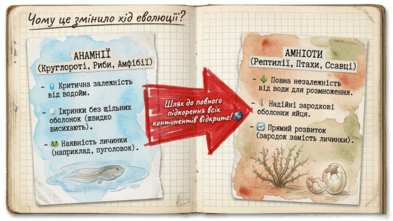 Чому це змінило хід еволюції?
АНАМНІЇ
(Круглороті, Риби, Амфібії)
- Критична залежність
від водойм.
- Ікринки без щільних
оболонок (швидко
висихають).
- Наявність личинки
(наприклад, пуголовок).
Шлях до повного
підкорення всіх
континентів відкрито!
АМНІОТИ
(Рептилії, Птахи, Ссавці)
- Повна незалежність
від води для розмноження.
- Надійні зародкові
оболонки яйця.
- Прямий розвиток
(зародок замість личинки).